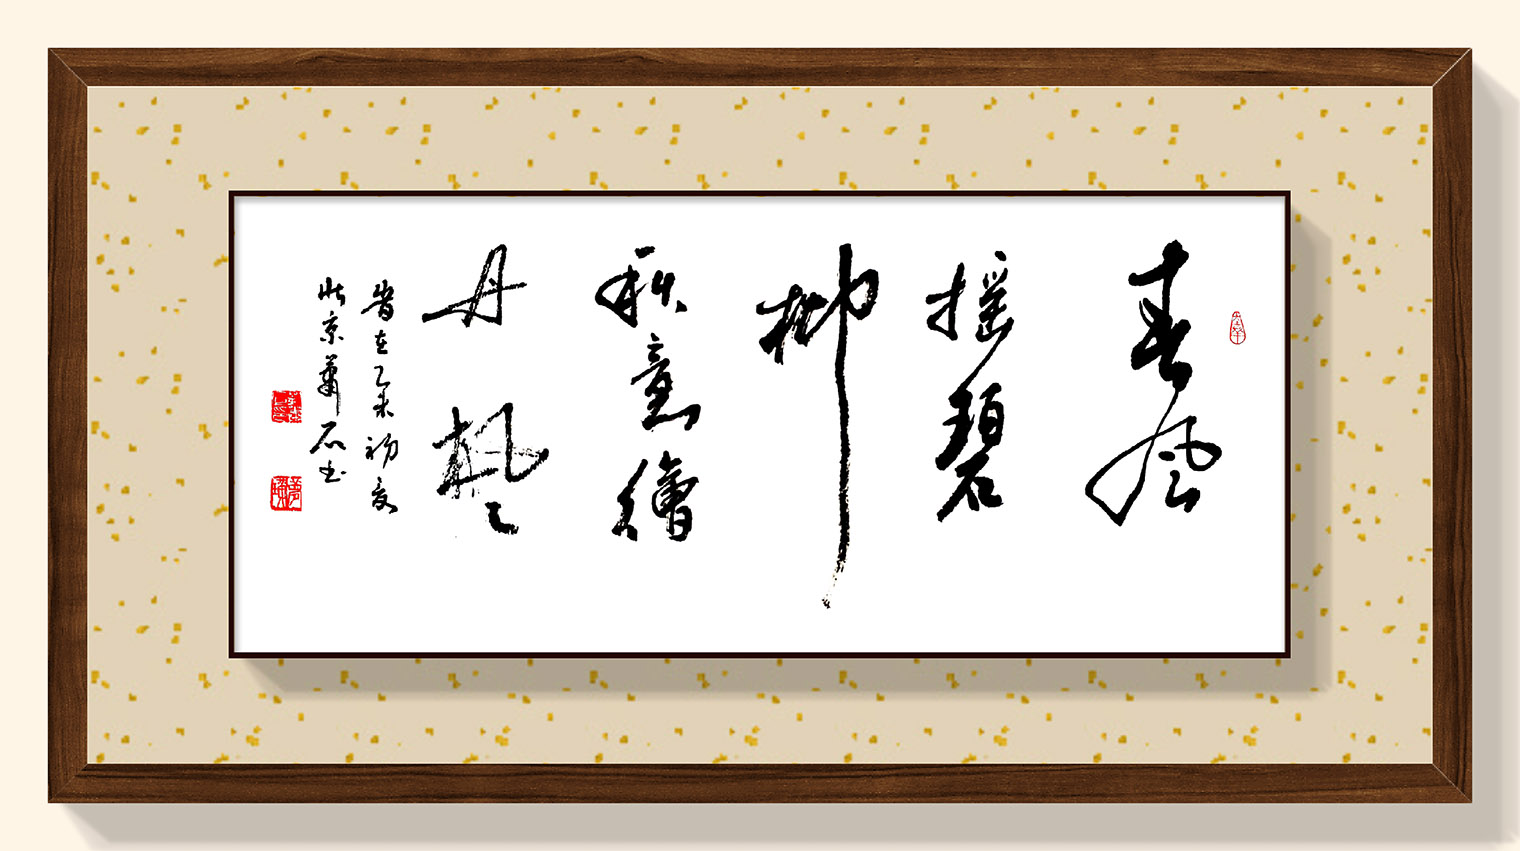 春風
搖碧
柳
秋意繪
丹楓
時在乙未初夏
北京蕭石書